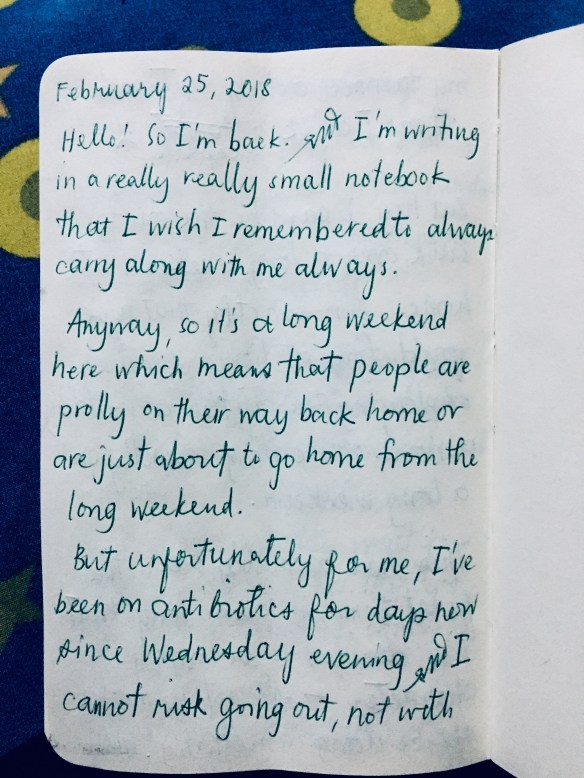 February 25, 2018
Hello! So I'm back. and I'm writing
in a really really small notebook
that I wish I remembered to always
carry along with me always.
Anyway, so it's a long weekend
here which means that people are
prolly on their way back home or
are just about to go home from the
long weekend.
But unfortunately for me, I've
been on antibiotics for days now
since Wednesday evening and I
cannot risk going out, not with